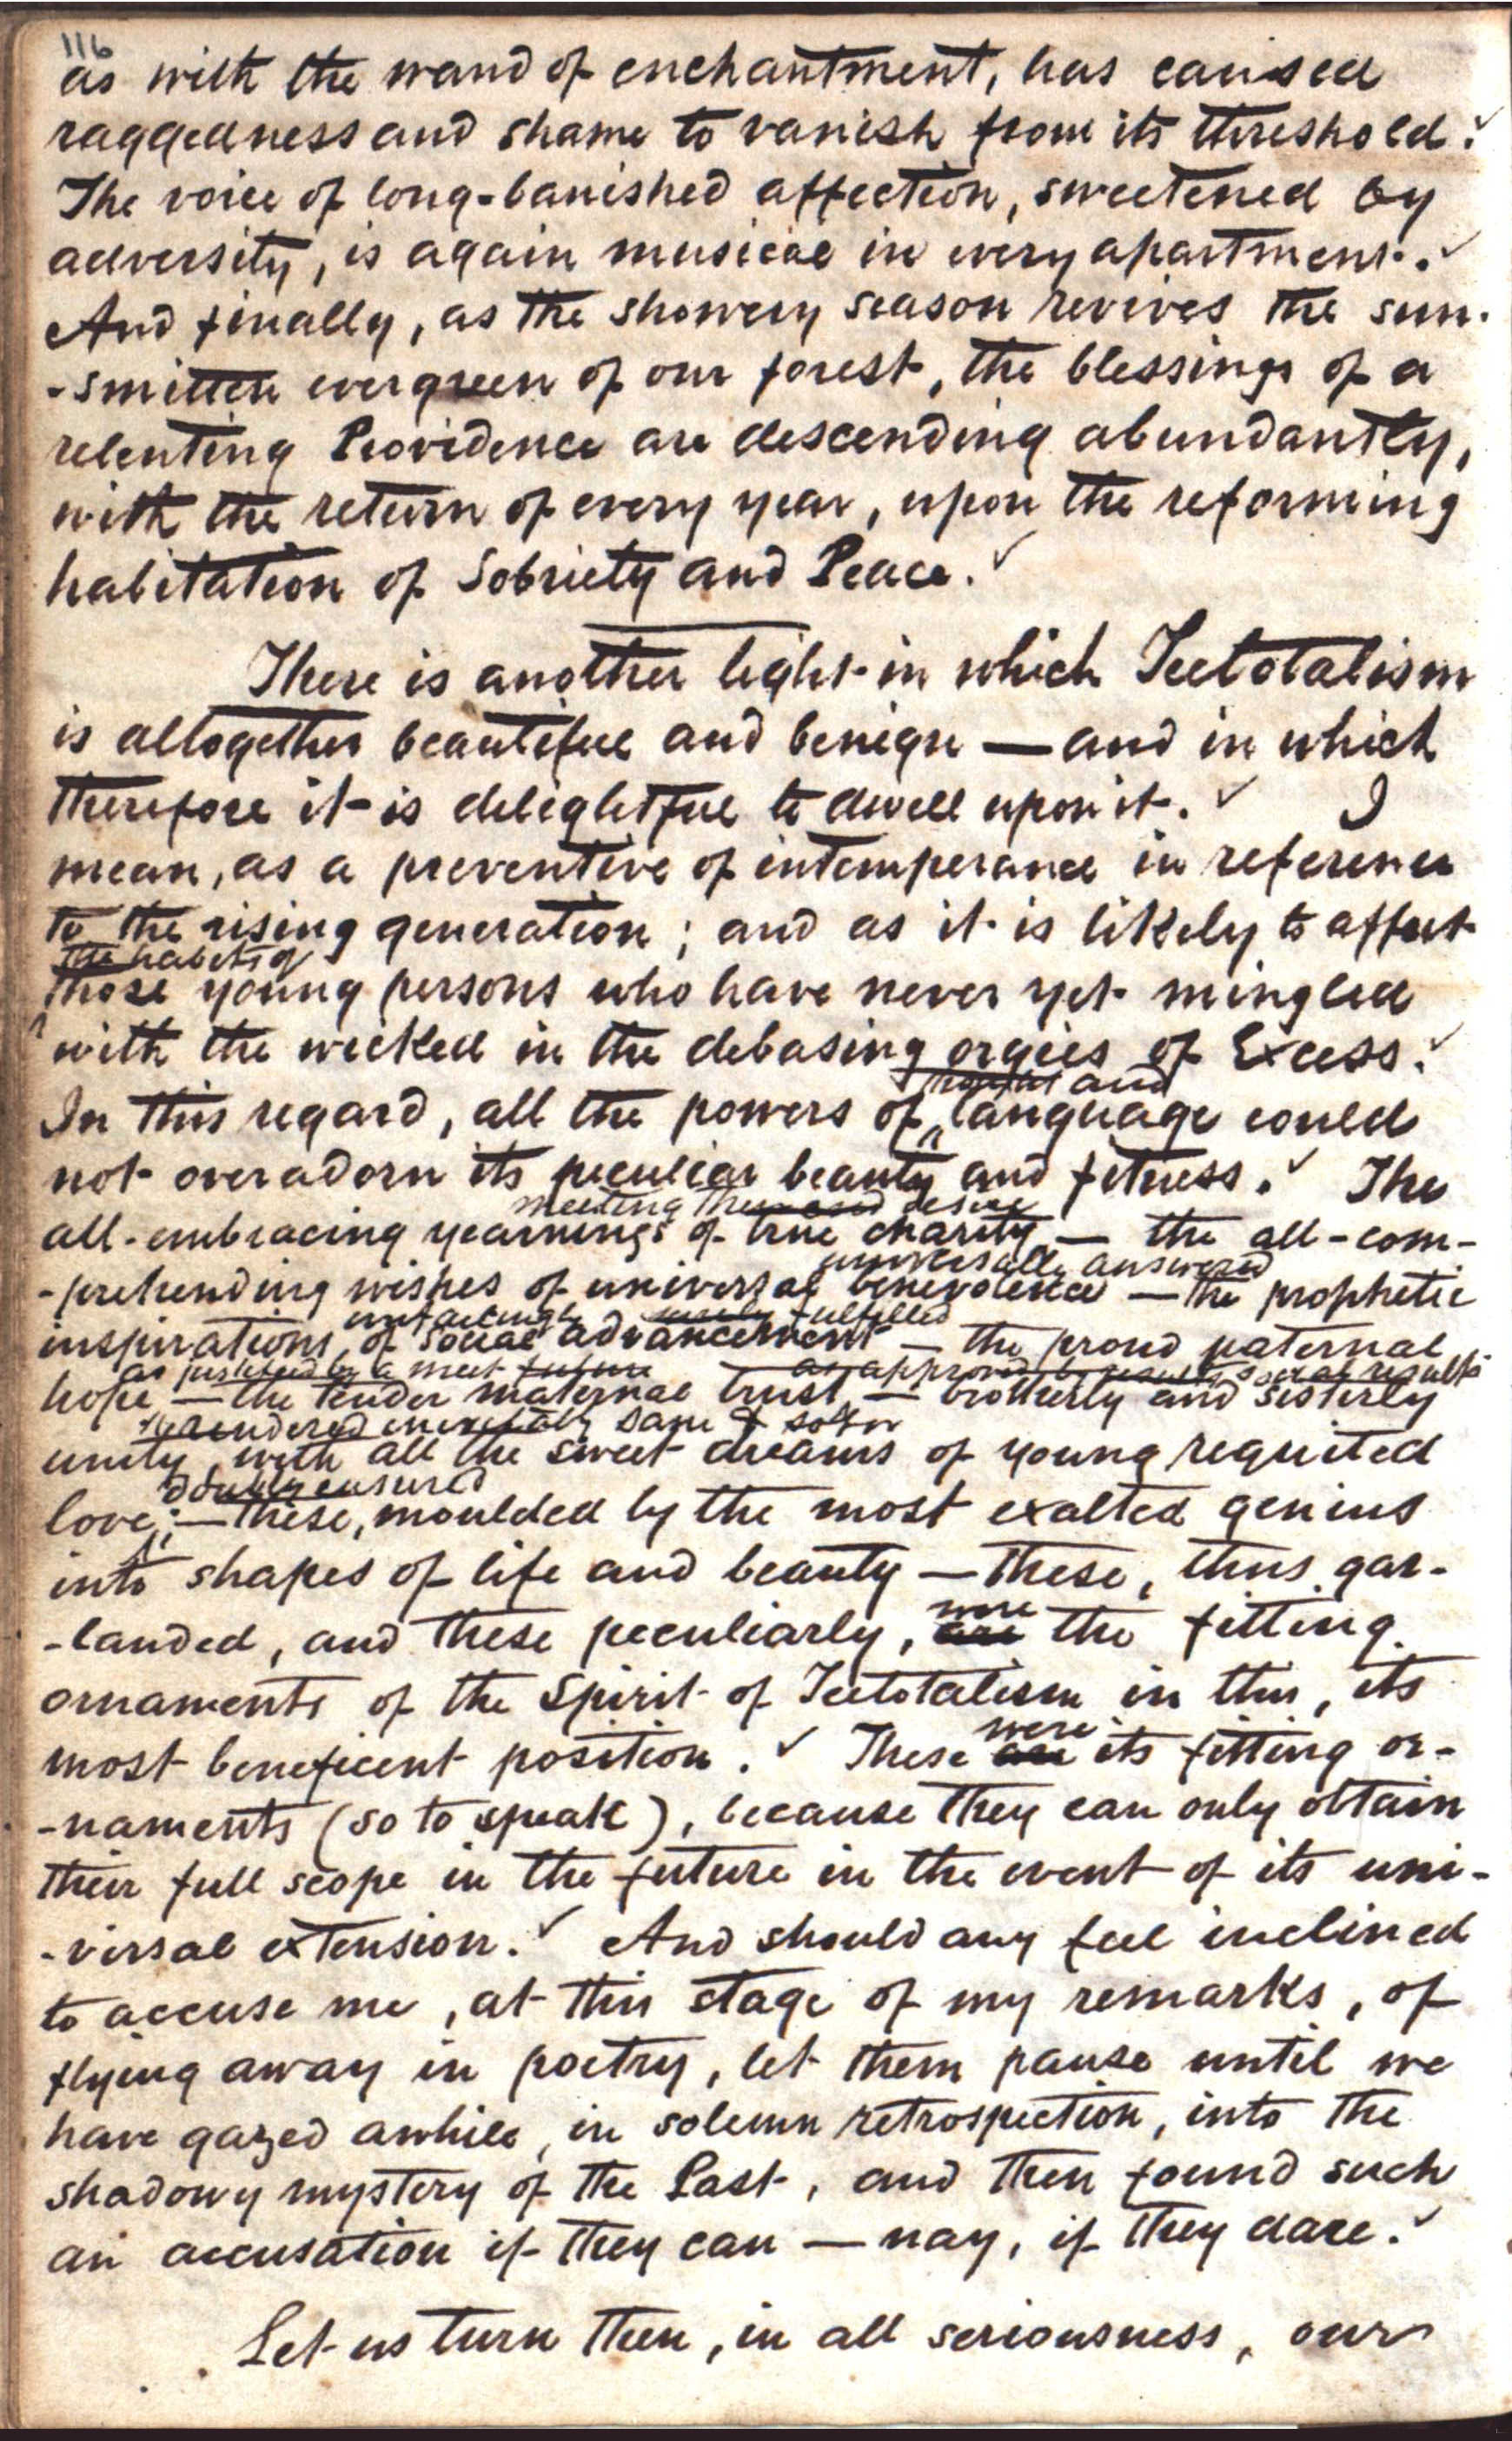 116
as with the wand of enchantment, has caused
raggedness and shame to vanish from its threshold.
The voice of long-banished affection, sweetened by
adversity, is again musical in every apartment.
And finally, as the showery season revives the sun-
-smitten evergreen of our forest, the blessings of a
relenting Providence are descending abundantly,
with the return of every year, upon the reforming
habitation of Sobriety and Peace.
There is another light in which Teetotalism
is altogether beautiful and benign — and in which
therefore it is delightful to dwell upon it. I
mean, as a preventive of intemperance in reference
to the rising generation; and as it is likely to affect
the habits of
those young persons who have never yet mingled
with the wicked in the debasing orgies of Excess.
and
In this regard, all the powers of language could
not overadorn its peculiar beauty and fitness. The
meeting desire
all-embracing yearnings of true charity — the all-com-
universally answered
-prehending wishes of universal benevolence — the prophetic
fulfilled
inspirations of social advancement — the proud paternal
as justified by a meet future as approved by social results
hope — the tender maternal trust — brotherly and sisterly
rendered sane & sober
unity, with all the sweet dreams of young requited
doubly ensured
love; — these, moulded by the most exalted genius
into shapes of life and beauty — these, thus gar-
were
-landed, and these peculiarly, are the fitting
ornaments of the Spirit of Teetotalism in this, its
were
most beneficent position. These are its fitting or-
-naments (so to speak), because they can only obtain
their full scope in the future in the event of its uni-
-versal extension. And should any feel inclined
to accuse me, at this stage of my remarks, of
flying away in poetry, let them pause until we
have gazed awhile, in solemn retrospection, into the
shadowy mystery of the Past, and then found such
an accusation if they can — nay, if they dare.
Let us turn then, in all seriousness, our